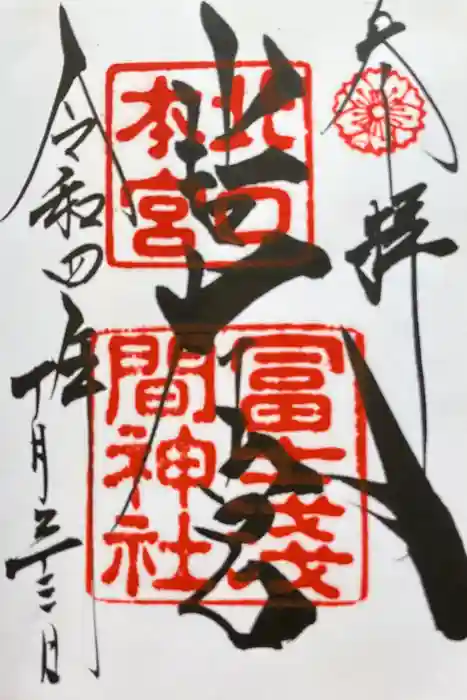 奉拝
北口
本宮
冨士淺
間神社
令和四年十月二十三日